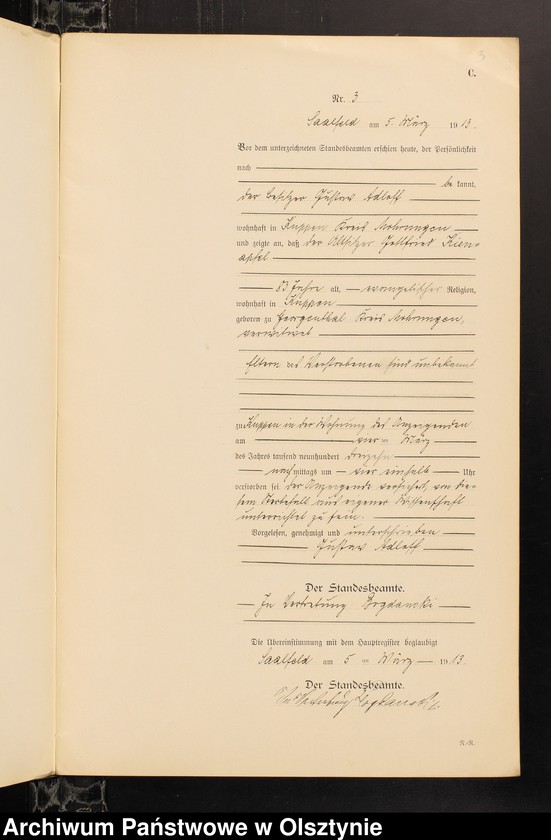 3
C.
Nr. 3
Saalfeld am 5. März 1913.
Vor dem unterzeichneten Standesbeamten erschien heute, der Persönlichkeit
nach
be kannt,
der Besitzer Gustav Adloff
wohnhaft in Kuppen Kreis Mohrungen
und zeigte an, daß der Altsitzer Gottfried Kien-
apfel
83 Jahre alt, evangelischer Religion,
wohnhaft in Kuppen
geboren zu Georgenthal Kreis Mohrungen,
verwitwet
Eltern des Verstorbenen sind unbekannt
zu Kuppen in der Wohnung des Anzeigenden
am vier ten März
des Jahres tausend neunhundert dreizehn
nach mittags um vier einhalb Uhr
verstorben sei der Anzeigende versichert, von die-
sem Sterbefall aus eigener Wissenschaft
unterrichtet zu sein.
Vorgelesen, genehmigt und unterschrieben
Gustav Adloff
Der Standesbeamte.
In Vertretung Bogdanski
Die Übereinstimmung mit dem Hauptregister beglaubigt
Saalfeld am 5 ten März 1913.
Der Standesbeamte.
In Vertretung Bogdanski
Archiwum Państwowe w Olsztynie